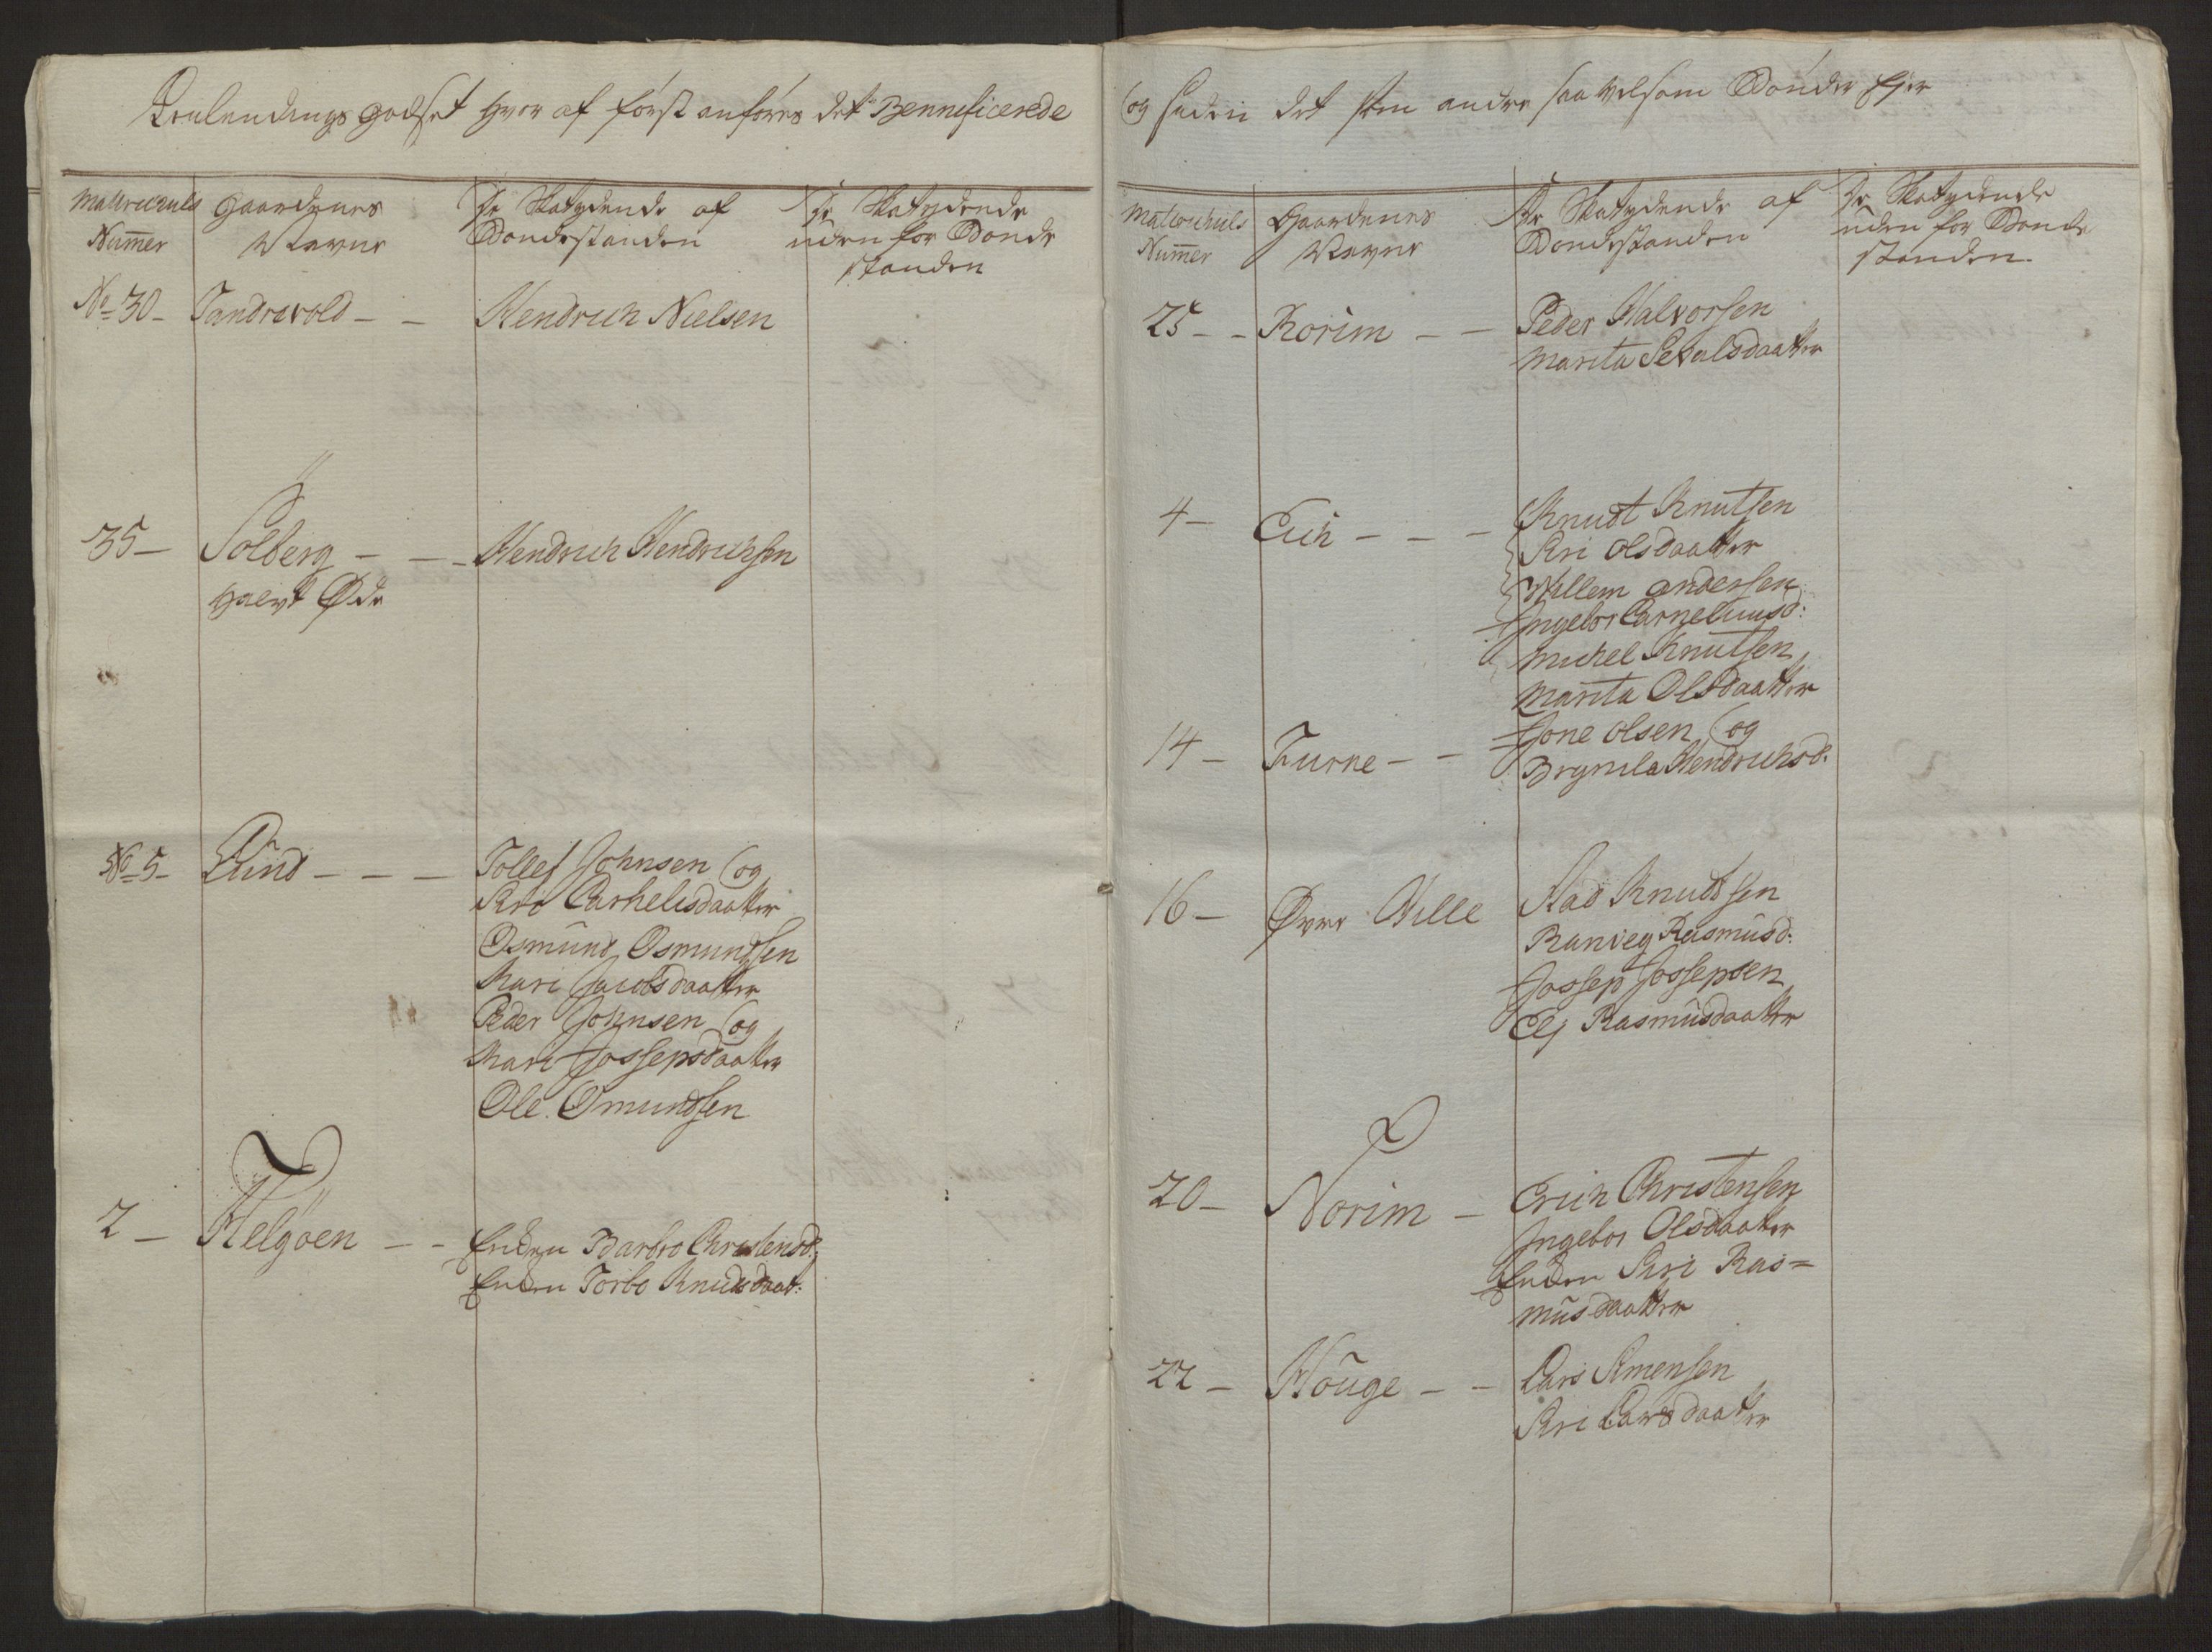 Leulendings godset hvor af først anføres det Bennificerede
Matricculs Nummer
Gaardenes Navne
De Skatydende af Bondestanden
De Skatydende uden for Bonde standen
No 30 - Tandrevold - - Hendrich Nielsen
35 - Solberg - - - Hendrich Hendrichsen
halvt Øde
No 5 - Lund - - - Tollef Johnsen og
Siri Carhelisdaatter
Osmund Osmundsen
Kari Jacobsdaatter
Peder Johnsen og
Kari Jossepsdaatter
Ole Omundsen
2 - Helgøen - - Enken Barbro Christensd:
Enken Torbo Knudsdaat:
og siden det som andre saavelsom Bønder Ejer
Matricculs Nummer
Gaardenes Navne
De Skatydende af Bondestanden
De Skatydende uden for Bonde standen
25 - - Rorim - - Peder Halvorsen
Marita Sevalsdaatter
4 - Eich - - - Knudt Knutsen
Siri Olsdaatter
Willem Andersen
Ingebor Carneliiusd:
Michel Knutsen
Marita Olsdaatter
14 - Turne - - Jone Olsen og
Brynila Hendrichsd.
16 - Øvre Wille Aad Knudtsen
Ranveg Rasmusd:
Jossep Jossepsen
Elj Rasmusdaatter
20 - Norim - Erich Christensen
Ingebor Olsdaatter
Enken Siri Ras=
musdaatter
22 - Houge - - Lars Simensen
Siri Larsdaatter